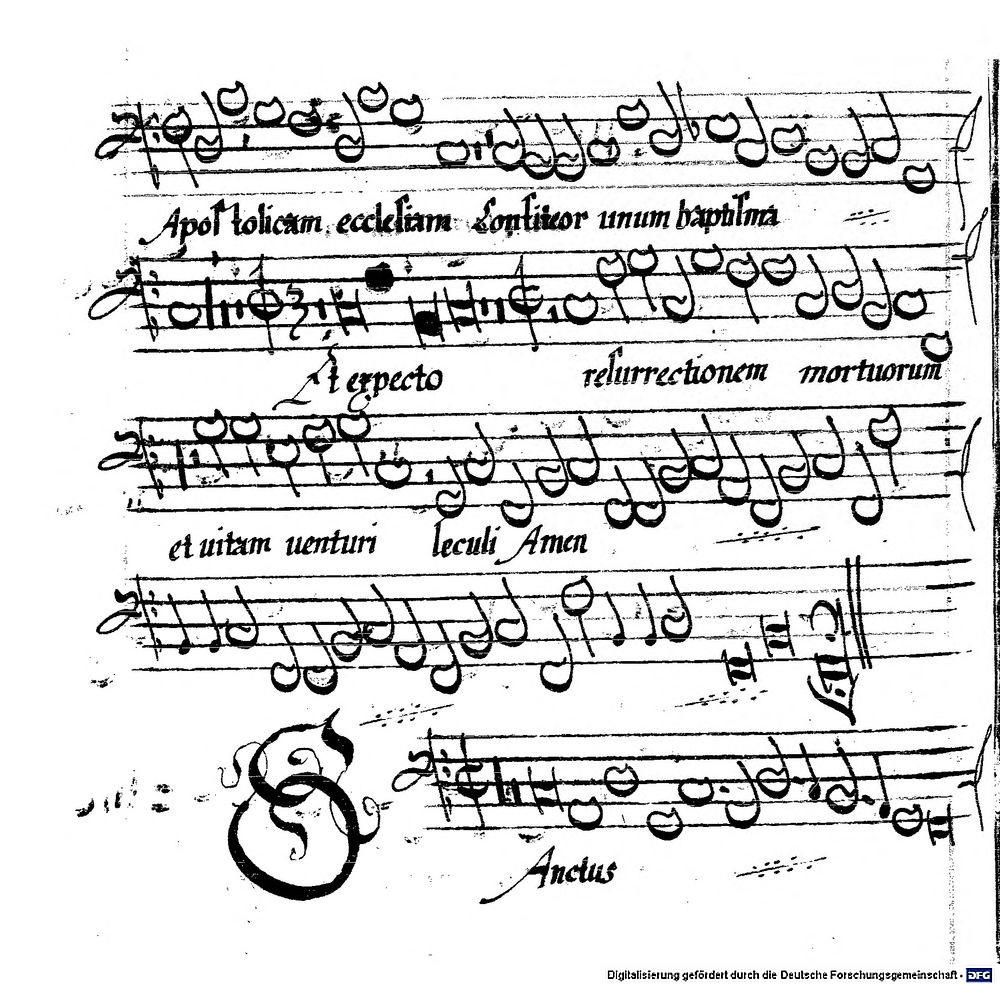 Apostolicam ecclesiam Confiteor unum baptisma
Et expecto resurrectionem mortuorum
et uitam uenturi seculi Amen
SAnctus
Digitalisierung gefördert durch die Deutsche Forschungsgemeinschaft - DFG